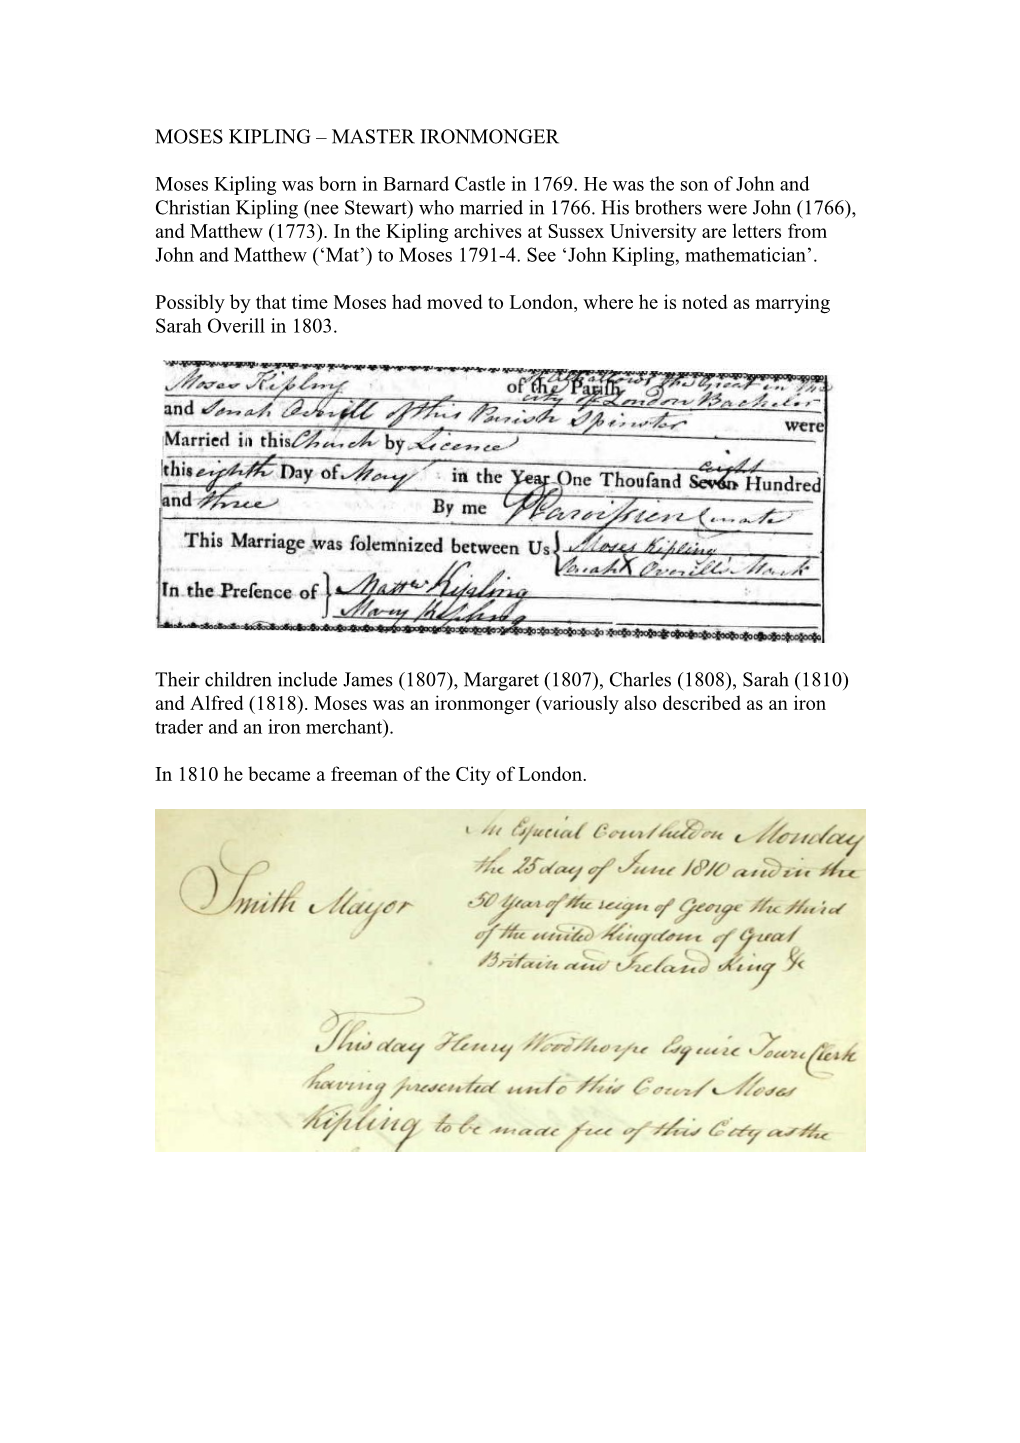 MOSES KIPLING – MASTER IRONMONGER
Moses Kipling was born in Barnard Castle in 1769. He was the son of John and
Christian Kipling (nee Stewart) who married in 1766. His brothers were John (1766),
and Matthew (1773). In the Kipling archives at Sussex University are letters from
John and Matthew (‘Mat’) to Moses 1791-4. See ‘John Kipling, mathematician’.
Possibly by that time Moses had moved to London, where he is noted as marrying
Sarah Overill in 1803.
Moses Kipling of the Parish Allhallows the Great in the
City of London Bachelor
and Sarah Overill of this Parish Spinster were
Married in this Church by Licence
this eighth Day of May in the Year One Thouſand Seven eight Hundred
and three By me Curate
This Marriage was ſolemnized between Us Moses Kipling
Sarah X Overill's Mark
In the Preſence of Mattw Kipling
Mary Kipling
Their children include James (1807), Margaret (1807), Charles (1808), Sarah (1810)
and Alfred (1818). Moses was an ironmonger (variously also described as an iron
trader and an iron merchant).
In 1810 he became a freeman of the City of London.
An Especial Court held on Monday
the 25 day of June 1810 and in the
Smith Mayor 50 Year of the reign of George the third
of the united Kingdom of Great
Britain and Ireland King &c
This day Henry Woodthorpe Esquire Town Clerk
having presented unto this Court Moses
Kipling to be made free of this City as the